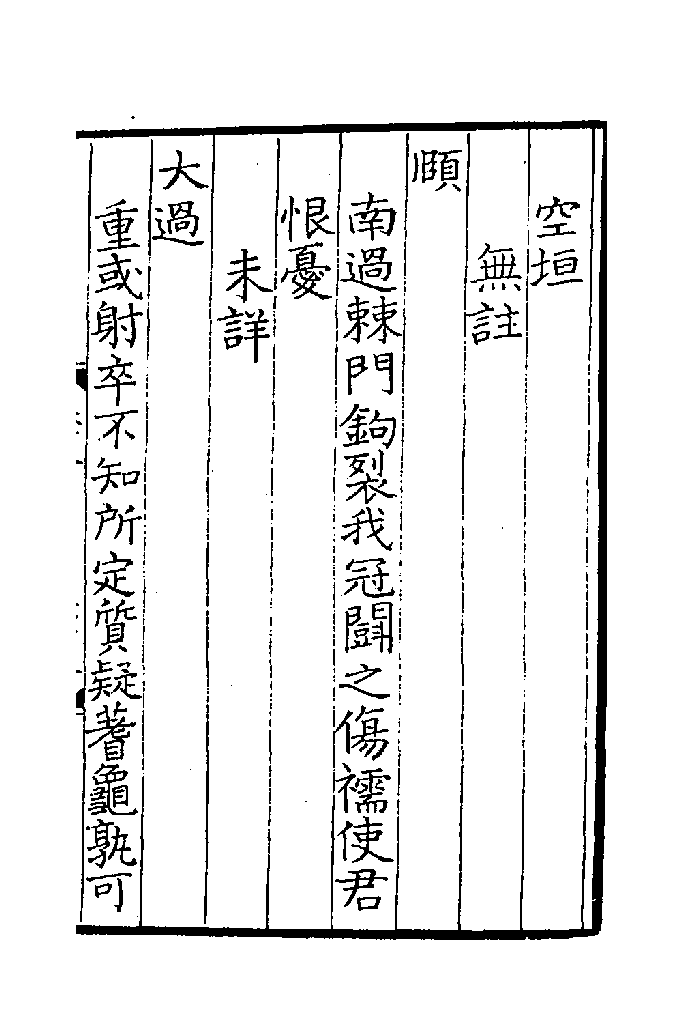 空垣
無註
頤
南過棘門鉤裂我冠闘之傷襦使君
恨憂
未詳
大過
重或射卒不知所定質疑蓍龜孰可